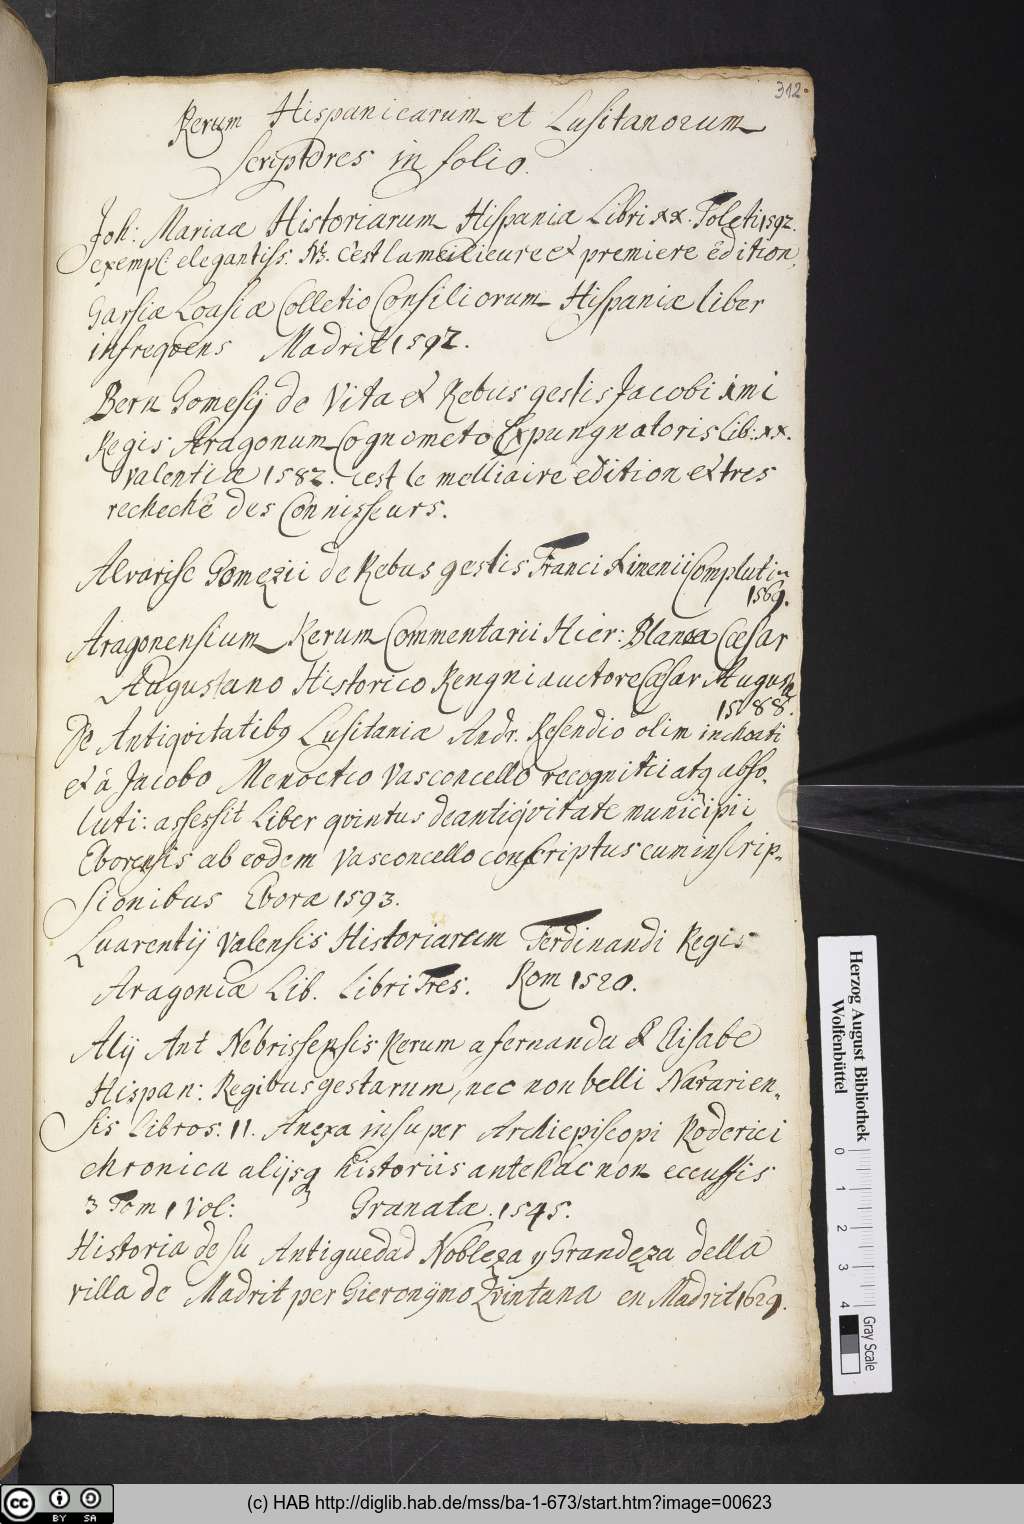 312.
Rerum Hispanicarum et Lusitanorum
Scriptores in folio.
Joh: Mariaæ Historiarum Hispaniæ Libri xx. Toleti 1592.
exempl: elegantiss. NB. C'est la meilieure et premiere edition.
Garsiæ Loasiæ Colletio Consiliorum Hispaniæ liber
infreqvens Madrit 1592.
Bern Gomesij de Vita et Rebus gestis Jacobi imi
Regis Aragonum Cognometo Expungnatoris Lib: xx.
Valentiæ 1582. cest le melliaire edition et tres
recheche des Connisseurs.
Alvarisc Gomezii de Rebus gestis Franci Ximenii Complutin
1569.
Aragonensium Rerum Commentarii Hier: Blanca Cæsar
Augustano Historico Rengni auctore Cæsar Augusta
1588.
De Antiqvitatibq Lusitaniæ Andr. Resendio olim inchoati
et à Jacobo Menoetio Vasconcello recogniti atq abso-
luti: assessit Liber qvintus de antiqvitate municipii
Eborensis ab eodem Vasconcello conscriptus cum inscrip-
sionibus Ebora 1593.
Luarentij Valensis Historiarum Ferdinandi Regis
Aragoniæ Lib. Libri Tres. Rom 1520.
Alij Ant Nebrissensis Rerum a fernandu & Elisabe
Hispan: Regibus gestarum, nec non belli Navarien-
sis Libros. 11. Anexa insuper Archiepiscopi Roderici
chronica alijsq historiis antehac non eccussis
3 Tom 1 Vol: Granata. 1545.
Historia de su Antiguedad Nobleza y Grandeza della
villa de Madrit per Gieronymo Qvintana en Madrit 1629.
Herzog August Bibliothek
Wolfenbüttel
0 1 2 3 4
Gray Scale
cc BY SA
(c) HAB http://diglib.hab.de/mss/ba-1-673/start.htm?image=00623